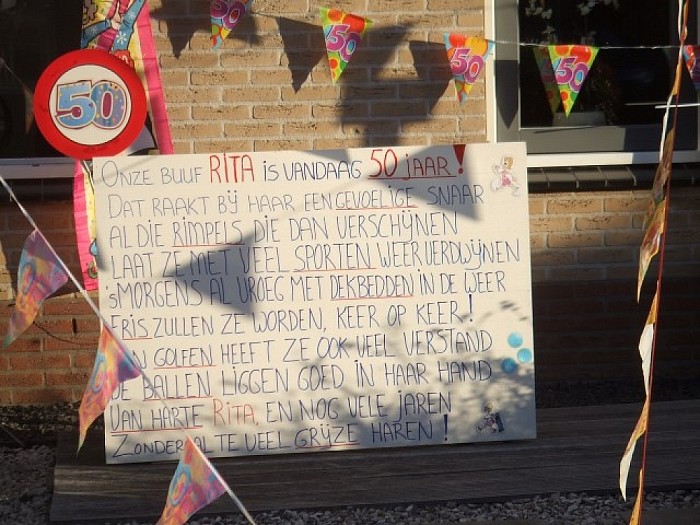 50
50
50
50
50
ONZE BUUF RITA IS VANDAAG 50 JAAR!
DAT RAAKT BIJ HAAR EEN GEVOELIGE SNAAR
AL DIE RIMPELS DIE DAN VERSCHIJNEN
LAAT ZE MET VEEL SPORTEN WEER VERDWIJNEN
'S MORGENS AL VROEG MET DEKBEDDEN IN DE WEER
FRIS ZULLEN ZE WORDEN, KEER OP KEER!
GOLFEN HEEFT ZE OOK VEEL VERSTAND
DE BALLEN LIGGEN GOED IN HAAR HAND
VAN HARTE RITA, EN NOG VELE JAREN
ZONDER AL TE VEEL GRIJZE HAREN!